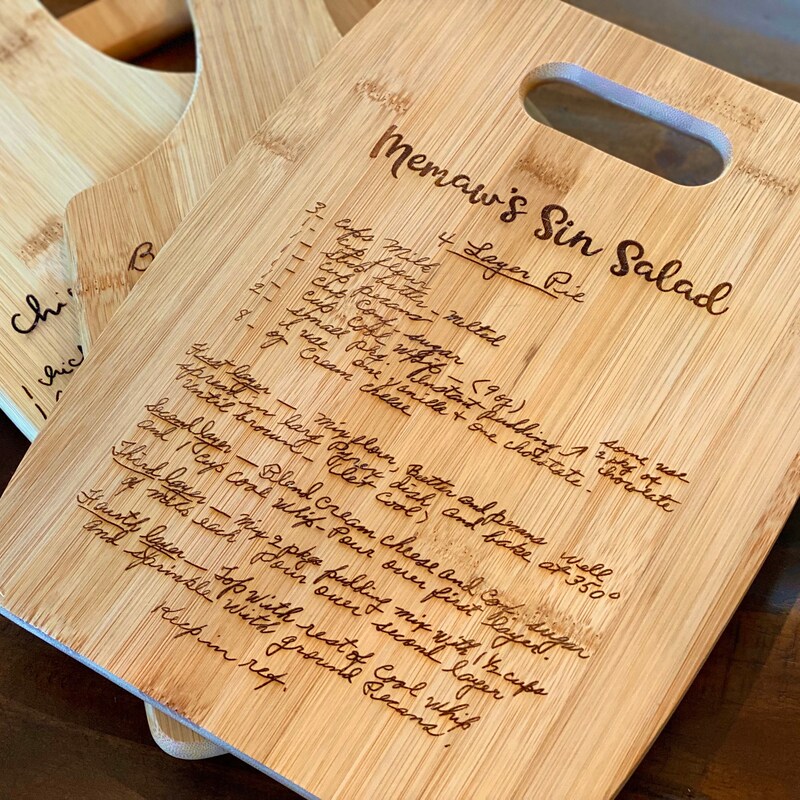 Memaw's Sin Salad
4 Layer Pie
3 cups Milk
1 cup flour
1 stick butter - melted
1 cup pecans
1 cup Conf. sugar
1 cup Cool Whip - (9oz)
2 small pkg. Instant pudding
I use one Vanilla + one chocolate. some use 2 pkg of chocolate
8 - oz Cream cheese
First layer - Mix flour, Butter and pecans well
spread in large Pyrex dish, and bake at 350°
until brown (let cool)
Second layer - Blend cream cheese and Conf. sugar
and 1 cup cool whip. Pour over first layer.
Third layer - Mix 2 pkgs pudding mix with 1½ cups
of milk each. Pour over second layer
Fourth layer - Top with rest of Cool Whip
and sprinkle with ground Pecans.
Keep in ref.
B
Chi
1 chic